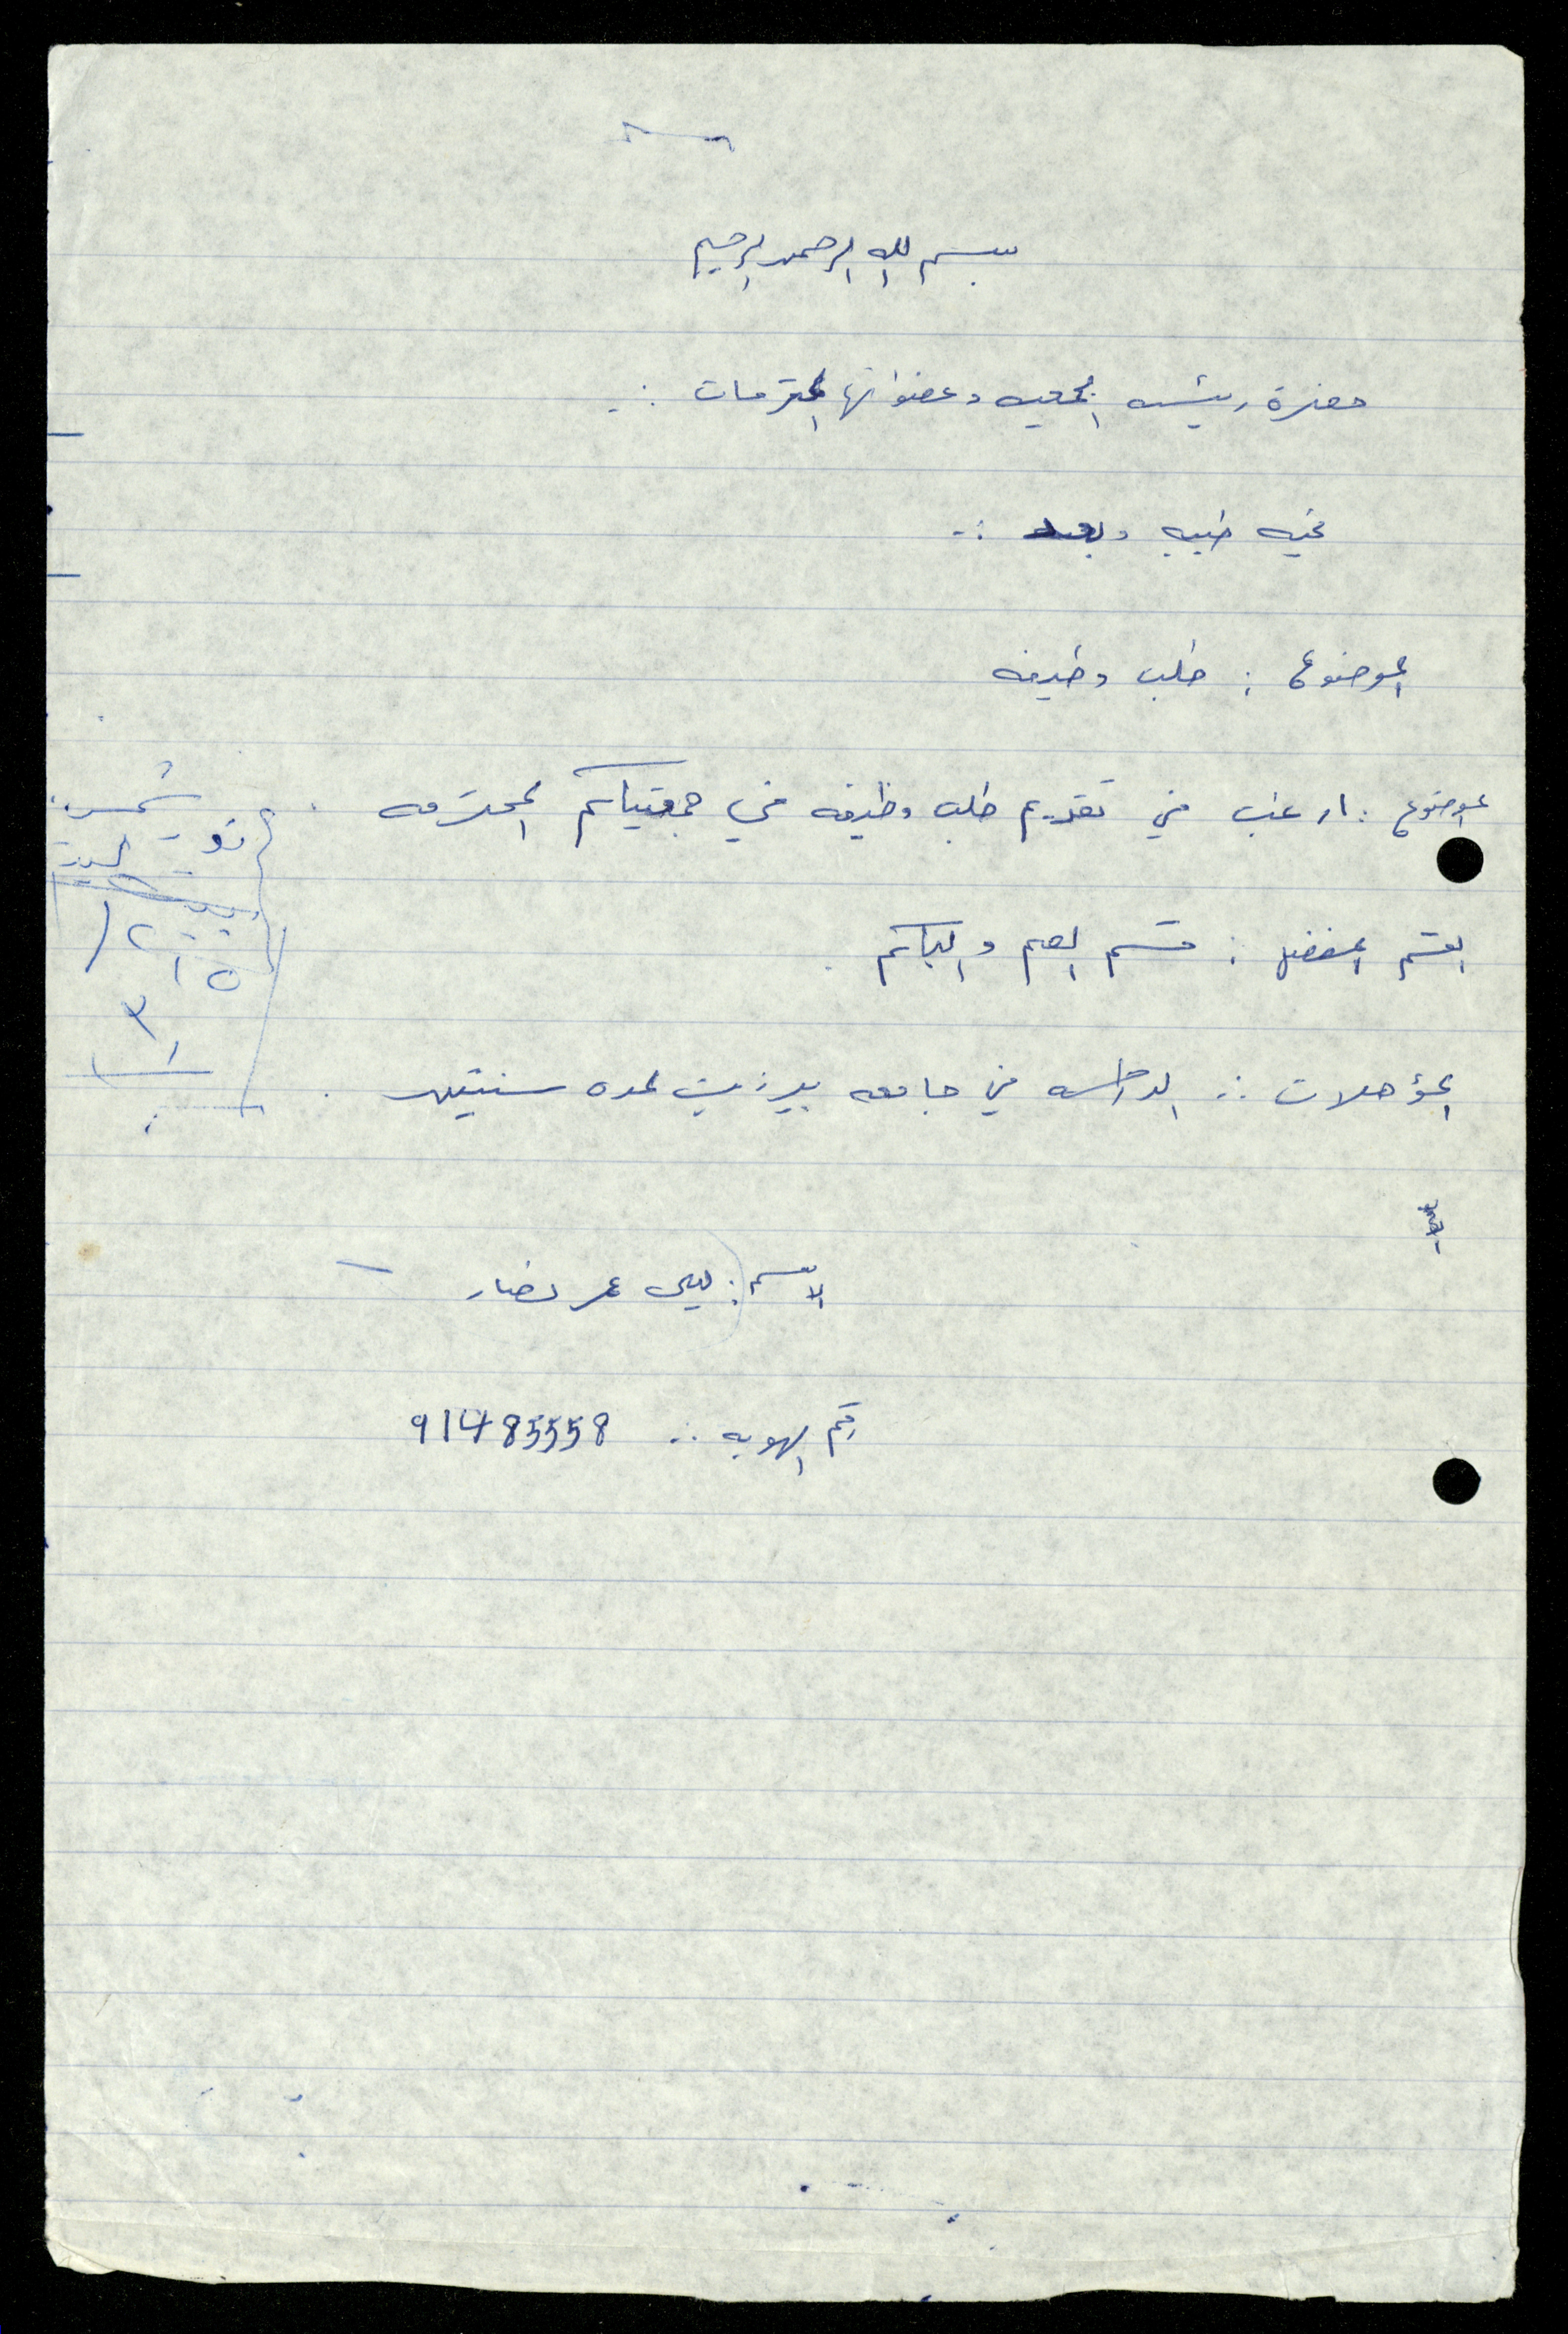 بسم الله الرحمن الرحيم
حضرة رئيسه الجمعيه وعضواتها المحترمات :.
تحيه طيبه وبعد :-
الموضوع : طلب وظيفه
الموضوع : ارغب في تقديم طلب وظيفه في جمعيتكم المحترمه .
القسم المفضل : قسم الصم والبكم .
المؤهلات :. الدراسه في جامعه بيرزيت لمده سنتين .
الاسم : ليلى عمر نصار
رقم الهويه :. 91485558